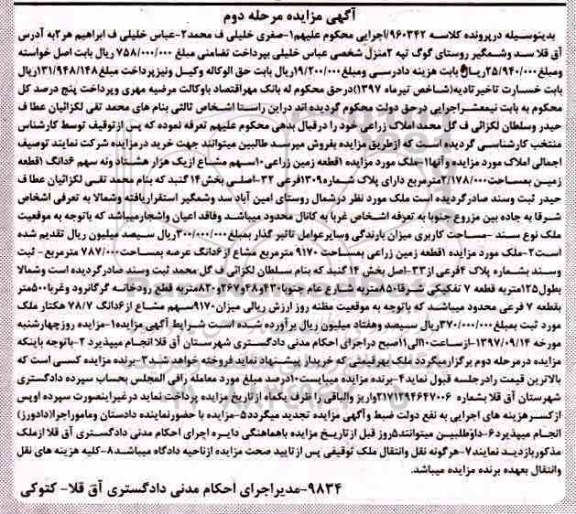 آگهی مزایده مرحله دوم
بدینوسیله درپرونده کلاسه ۹۶۰۳۴۲/اجرایی محکوم علیهم۱-صغری خلیلی ف محمد۲-عباس خلیلی ف ابراهیم هر۲به آدرس
آق قلا سد وشمگیر روستای گوگ تپه ۲منزل شخصی عباس خلیلی بپرداخت تضامنی مبلغ ۷۵۸/۰۰۰/۰۰۰ ریال بابت اصل خواسته
ومبلغ۲۵/۹۴۰/۰۰۰ریال بابت هزینه دادرسی ومبلغ۱۹/۲۰۰/۰۰۰ریال بابت حق الوکاله وکیل ونیزپرداخت مبلغ ۱۳۱/۹۴۸/۱۴۸ریال
بابت خسارت تاخیرتادیه(شاخص تیرماه ۱۳۹۷)درحق محکوم له بانک مهراقتصاد باوکالت مرضیه مهری وپرداخت پنج درصد کل
محکوم به بابت نیمعشراجرایی درحق دولت محکوم گردیده اند دراین راستا اشخاص ثالثی بنام های محمد تقی لکزائیان عطا ف
حیدر وسلطان لکزائی ف گل محمد املاک زراعی خود را در قبال بدهی محکوم علیهم تعرفه نموده که پس ازتوقیف توسط کارشناس
منتخب کارشناسی گردیده است که ازطریق مزایده بفروش میرسد طالبین میتوانند جهت خرید درمزایده شرکت نمایند توصیف
اجمالی املاک مورد مزایده وآنها۱-ملک مورد مزایده ۱قطعه زمین زراعی ۱۰سهم مشاع ازیک هزار هشتاد ونه سهم ۶دانگ ۱قطعه
زمین بمساحت۲/۱۷۸/۰۰۰مترمربع دارای پلاک شماره۱۳۰۹فرعی ۳۲-اصلی بخش۱۴ گنبد که بنام محمد تقی لکزائیان عطا ف
حیدر ثبت وسند صادرگردیده است ملک مورد نظر درشمال روستای امین آباد سد وشمگیر استقراریافته وشمالا به تعرفی اشخاص
شرقا به جاده بین مزروع جنوبا به تعرفه اشخاص غربا به کانال محدود میباشد وفاقد اعیان واشجارمیباشد که باتوجه به موقعیت
ملک نوع سند -مساحت کاربری میزان بارندگی وسایرعوامل تاثیر گذار بمبلغ۳۰۰/۰۰۰/۰۰۰ریال سیصد میلیون ریال تقدیم شده
است۲-ملک مورد مزایده ۱قطعه زمین زراعی بمساحت ۹۱۷۰ مترمربع مشاع از۶دانگ عرصه بمساحت۷۸۷/۰۰۰ مترمربع- ثبت
وسند بشماره پلاک ۴فرعی از۳۳-اصل بخش ۱۴ گنبد که بنام سلطان لکزائی ف گل محمد ثبت وسند صادرگردیده است وشمالا
بطول۱۲۵متربه قطعه ۷ تفکیکی شرقا۸۵۰متربه شارع عام جنوبا۴۳۰و۴۸و۲۶۷و۸۲۰متربه قطع رودخانه گرگانرود وغربا۵۰۰متر
بقطعه ۷ فرعی محدود میباشدکه باتوجه به موقعیت مظنه روز ارزش ریالی میزان۹۱۷۰سهم مشاع از۶دانگ ۷۸/۷ هکتار ملک
مورد ثبت بمبلغ۳۷۰/۰۰۰/۰۰۰ریال سیصد وهفتاد میلیون ریال برآورده شده است شرایط آگهی مزایده۱-مزایده روزچهارشنبه
مورخه ۱۳۹۷/۰۹/۱۴-ازساعت۱۰الی۱۱صبح دراجرای احکام مدنی دادگستری شهرستان آق قلا انجام میپذیرد ۲-باتوجه باینکه
مزایده درمرحله دوم برگزارمیگردد ملک بهرقیمتی که خریدار پیشنهاد نماید فروخته خواهد شد۳-برنده مزایده کسی است که
بالاترین قیمت رادرجلسه قبول نماید ۴-برنده مزایده میبایست۱۰درصد مبلغ مورد معامله رافی المجلس بحساب سپرده دادگستری
شهرستان آق قلا بشماره ۲۱۷۱۲۹۴۶۴۷۰۰۶واریز والباقی را ظرف یکماه ازتاریخ مزایده پرداخت نماید درغیراینصورت سپرده اوپس
ازکسرهزینه های اجرایی به نفع دولت ضبط وآگهی مزایده تجدید میگردد۵-مزایده با حضورنماینده دادستان ومامور اجرا(دادورز)
انجام میپذیرد۶-داوطلبین میتوانند۵روز قبل ازتاریخ مزایده باهماهنگی دایره اجرای احکام مدنی دادگستری آق قلا ازملک
مذکوربازدید نمایند۷-هرگونه نقل وانتقال ملک توقیفی پس ازتایید صحت مزایده ازناحیه دادگاه میباشد۸-کلیه هزینه های نقل
وانتقال بعهده برنده مزایده میباشد.
۹۸۳۴-مدیراجرای احکام مدنی دادگستری آق قلا- کتوکی